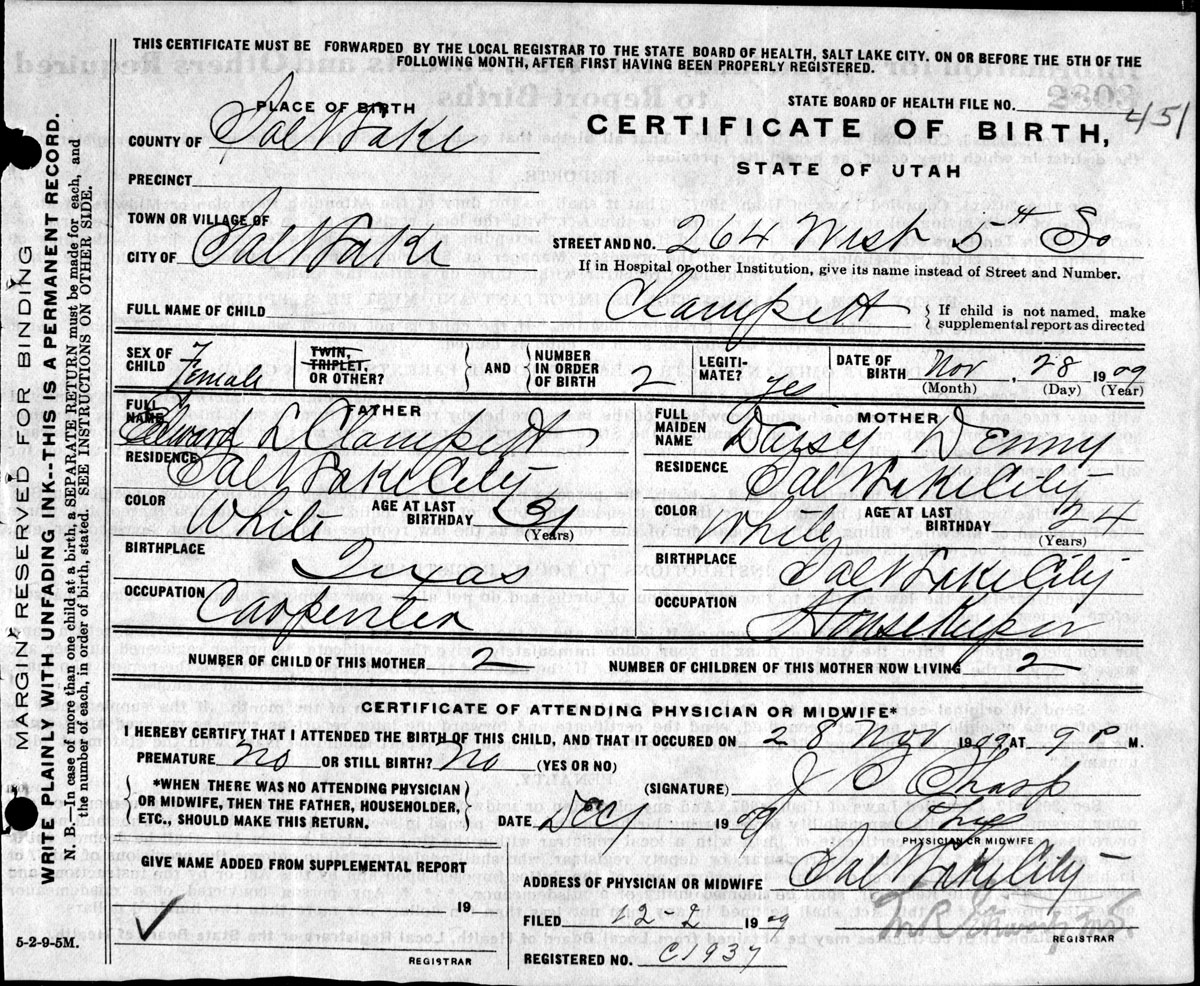 THIS CERTIFICATE MUST BE FORWARDED BY THE LOCAL REGISTRAR TO THE STATE BOARD OF HEALTH, SALT LAKE CITY. ON OR BEFORE THE 5TH OF THE
FOLLOWING MONTH, AFTER FIRST HAVING BEEN PROPERLY REGISTERED.
PLACE OF BIRTH
STATE BOARD OF HEALTH FILE NO. 451
COUNTY OF Salt Lake
CERTIFICATE OF BIRTH,
STATE OF UTAH
PRECINCT
TOWN OR VILLAGE OF
CITY OF Salt Lake
STREET AND NO. 264 West 5th So
If in Hospital or other Institution, give its name instead of Street and Number.
FULL NAME OF CHILD Clampitt
If child is not named, make
supplemental report as directed
SEX OF CHILD Female
TWIN, TRIPLET, OR OTHER?
AND
NUMBER IN ORDER OF BIRTH 2
LEGITIMATE? yes
DATE OF BIRTH Nov, 28 1909
(Month) (Day) (Year)
FATHER
FULL NAME Edward L Clampitt
RESIDENCE Salt Lake City
COLOR White
AGE AT LAST BIRTHDAY 31
(Years)
BIRTHPLACE Texas
OCCUPATION Carpenter
MOTHER
FULL MAIDEN NAME Daisy Denny
RESIDENCE Salt Lake City
COLOR White
AGE AT LAST BIRTHDAY 24
(Years)
BIRTHPLACE Salt Lake City
OCCUPATION Housekeeper
NUMBER OF CHILD OF THIS MOTHER 2
NUMBER OF CHILDREN OF THIS MOTHER NOW LIVING 2
CERTIFICATE OF ATTENDING PHYSICIAN OR MIDWIFE*
I HEREBY CERTIFY THAT I ATTENDED THE BIRTH OF THIS CHILD, AND THAT IT OCCURED ON 28 Nov 1909 AT 9 P M.
PREMATURE no OR STILL BIRTH? no (YES OR NO)
*WHEN THERE WAS NO ATTENDING PHYSICIAN
OR MIDWIFE, THEN THE FATHER, HOUSEHOLDER,
ETC., SHOULD MAKE THIS RETURN.
(SIGNATURE)
DATE Dec 1 1909
PHYSICIAN OR MIDWIFE
GIVE NAME ADDED FROM SUPPLEMENTAL REPORT
19
REGISTRAR
ADDRESS OF PHYSICIAN OR MIDWIFE Salt Lake City
FILED 12-2 1909
REGISTRAR
REGISTERED NO. C1937
5-2-9-5M.
MARGIN RESERVED FOR BINDING
WRITE PLAINLY WITH UNFADING INK--THIS IS A PERMANENT RECORD.
N. B.-In case of more than one child at a birth, a SEPARATE RETURN must be made for each, and
the number of each, in order of birth, stated. SEE INSTRUCTIONS ON OTHER SIDE.